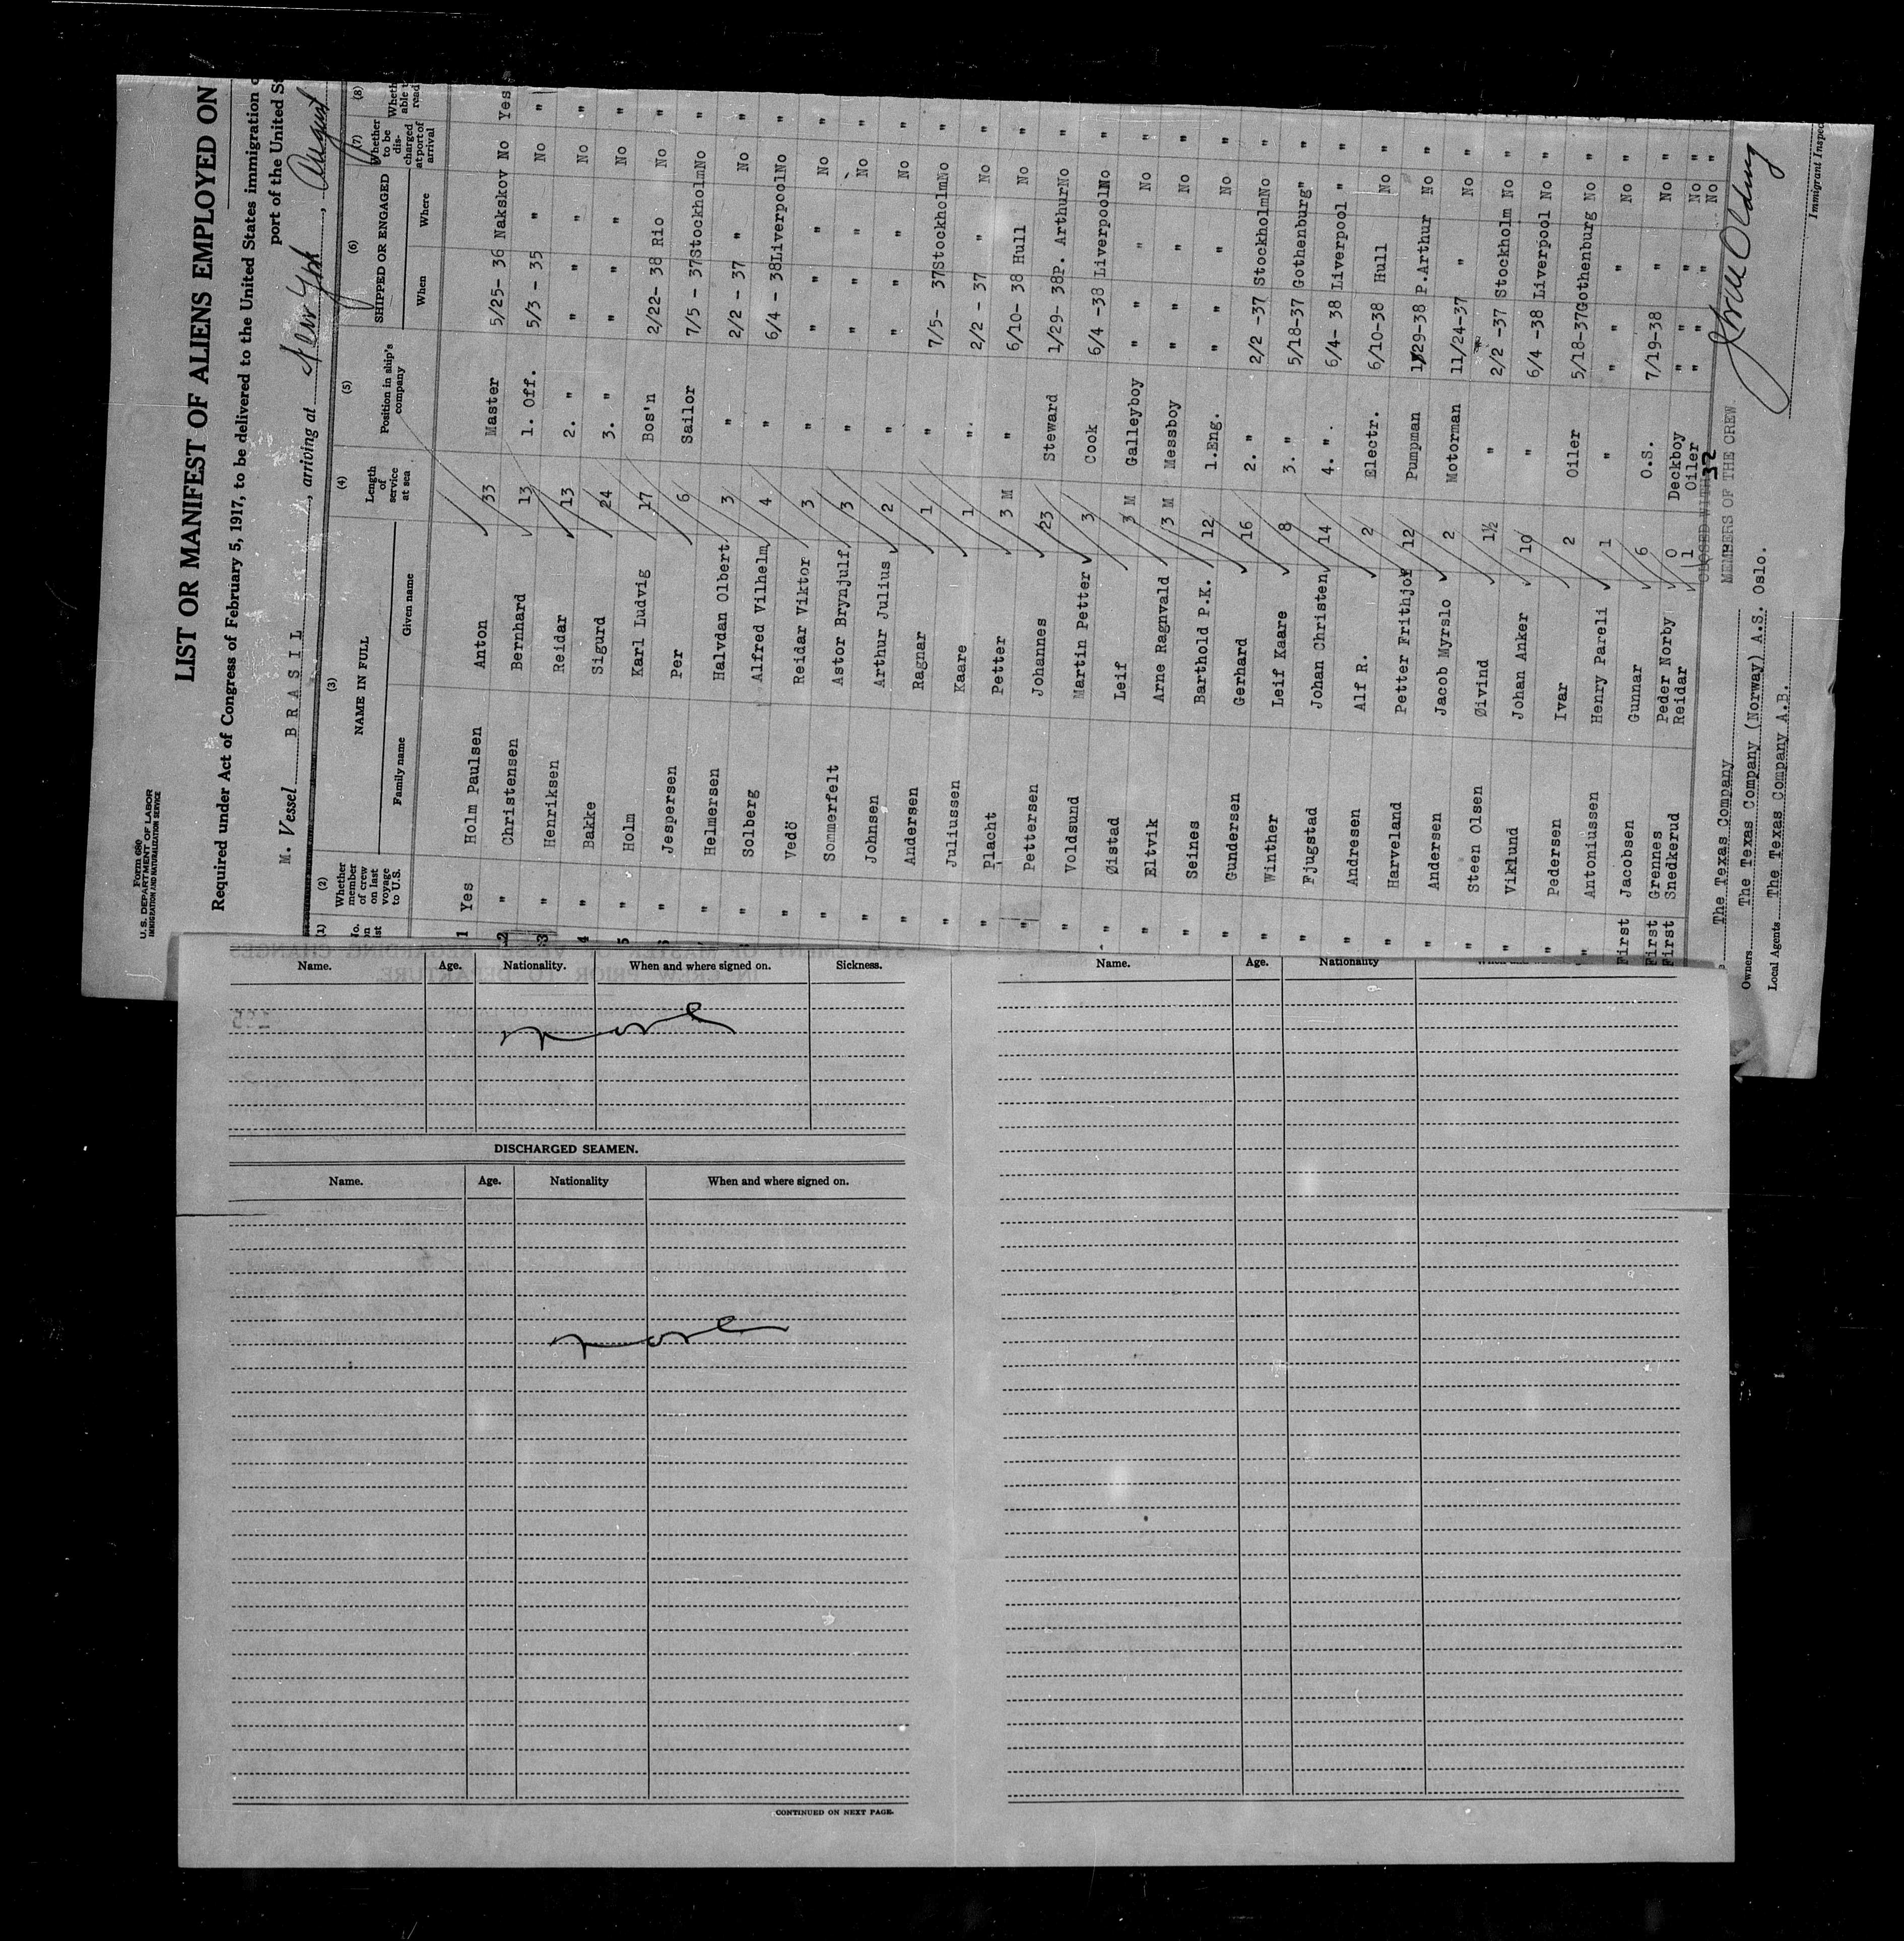 Form 680
U. S. DEPARTMENT OF LABOR
IMMIGRATION AND NATURALIZATION SERVICE
LIST OR MANIFEST OF ALIENS EMPLOYED ON
Required under Act of Congress of February 5, 1917, to be delivered to the United States immigration
port of the United
M. Vessel BRASIL, arriving at New York, August
(1) (2) (3) (4) (5) (6) (7) (8)
Whether member of crew on last voyage to U.S. NAME IN FULL Length of service at sea Position in ship's company SHIPPED OR ENGAGED Whether to be discharged at port of arrival
Family name Given name When Where
1 Yes Holm Paulsen Anton 33 Master 5/25- 36 Nakskov No Yes
2 " Christensen Bernhard 13 1. Off. 5/3 - 35 " No "
3 " Henriksen Reidar 13 2. " " " No "
4 " Bakke Sigurd 24 3. " " " No "
5 " Holm Karl Ludvig 17 Bos'n 2/22- 38 Rio No "
" Jespersen Per 6 Sailor 7/5 - 37 Stockholm No "
" Helmersen Halvdan Olbert 3 " 2/2 - 37 " No "
" Solberg Alfred Vilhelm 4 " 6/4 - 38 Liverpool No "
" Vedö Reidar Viktor 3 " " " No "
" Sommerfelt Astor Brynjulf 3 " " " No "
" Johnsen Arthur Julius 2 " " " No "
" Andersen Ragnar 1 " 7/5- 37 Stockholm No "
" Juliussen Kaare 1 ". 2/2 - 37 " No "
" Placht Petter 3 M " 6/10- 38 Hull No "
" Pettersen Johannes 23 Steward 1/29- 38 P. Arthur No "
" Voldsund Martin Petter 3 Cook 6/4 -38 Liverpool No "
" Øistad Leif 3 M Galleyboy " " No "
" Eltvik Arne Ragnvald 3 M Messboy " " No "
" Seines Barthold P.K. 12 1.Eng. " " No "
" Gundersen Gerhard 16 2. " 2/2 -37 Stockholm No "
" Winther Leif Kaare 8 3. " 5/18-37 Gothenburg " "
" Fjugstad Johan Christen 14 4. ". 6/4- 38 Liverpool " "
" Andresen Alf R. 2 Electr. 6/10-38 Hull No "
" Harveland Petter Frithjof 12 Pumpman 1/29-38 P.Arthur No "
" Andersen Jacob Myrslo 2 Motorman 11/24-37 " No "
" Steen Olsen Øivind 1½ " 2/2 -37 Stockholm No "
" Viklund Johan Anker 10 " 6/4 -38 Liverpool No "
" Pedersen Ivar 2 Oiler 5/18-37 Gothenburg No "
" Antoniussen Henry Pareli 1 " " " No "
First Jacobsen Gunnar 6 O.S. 7/19-38 " No "
First Grennes Peder Norby 0 Deckboy " " No "
First Snedkerud Reidar 1 Oiler " " No "
CLOSED WITH 32
MEMBERS OF THE CREW.
The Texas Company
Owners The Texas Company (Norway) A.S. Oslo.
Local Agents The Texas Company A.B.
Immigrant
Name. Age. Nationality. When and where signed on. Sickness.
none
DISCHARGED SEAMEN.
Name. Age. Nationality When and where signed on.
none
CONTINUED ON NEXT PAGE.
Name. Age. Nationality